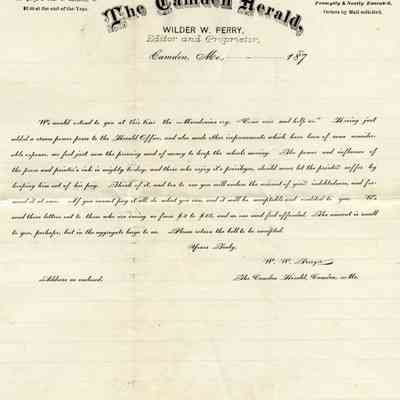 $2.00 at the end of the Year.
Promptly & Neatly Executed.
Orders by Mail solicited.
The Camden Herald,
WILDER W. PERRY,
Editor and Proprietor.
Camden, Me., 187
We would extend to you at this time the Macedonian cry, "Come over and help us." Having just
added a steam power press to the Herald Office, and also made other improvements which have been of some consider-
able expense, we feel just now the pressing need of money to keep the whole moving. The power and influence of
the press and printer's ink is mighty to-day, and those who enjoy its privileges, should never let the printer suffer by
keeping him out of his pay. Think of it, and see to it you will enclose the amount of your indebtedness, and for-
ward it at once. If you cannot pay it all, do what you can, and it will be acceptable and credited to you. We
send these letters out to those who are owing us from $2 to $10, and no one need feel offended. The amount is small
to you, perhaps, but in the aggregate large to us. Please return the bill to be receipted.
Yours Truly,
W. W. Perry,
Address as enclosed.
The Camden Herald, Camden, Me.